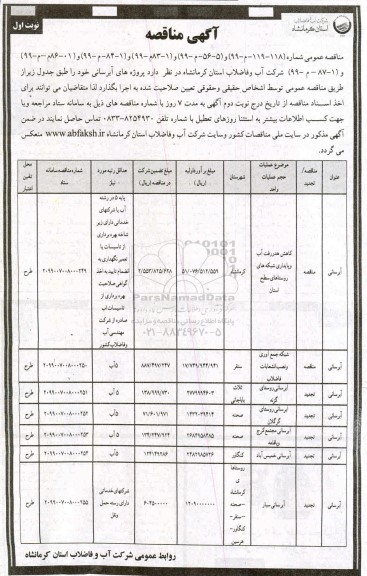 شرکت آب و فاضلاب
استان کرمانشاه
نوبت اول
آگهی مناقصه
مناقصه عمومی شماره (۱۱۸-۱۱۹-م-۹۹) و (۵-۵۶-م-۹۹) و (۱-۸۳-م-۹۹) و (۱-۸۴-م-۹۹) و (۰۱-۸۶-م-۹۹)
و (۱-۸۷-م-۹۹) شرکت آب وفاضلاب استان کرمانشاه در نظر دارد پروژه های آبرسانی خود را طبق جدول زیر از
طریق مناقصه عمومی توسط اشخاص حقیقی وحقوقی تعیین صلاحیت شده به اجرا بگذارد لذا متقاضیان می توانند برای
اخذ اسناد مناقصه از تاریخ درج نوبت دوم آگهی به مدت ۷ روز با شماره مناقصه های ذیل به سامانه ستاد مراجعه ویا
جهت کسب اطلاعات بیشتر به استثنا روزهای تعطیل با شماره تلفن ۸۲۵۴۹۳۰-۰۸۳۳ تماس حاصل نمایند در ضمن
آگهی مذکور در سایت ملی مناقصات کشور وسایت شرکت آب وفاضلاب استان کرمانشاه www.abfaksh.ir منعکس
می گردد.
عنوان مناقصه/تجدید موضوع عملیات حجم عملیات واحد شهرستان مبلغ برآورد اولیه (ریال) مبلغ تضمین شرکت در مناقصه (ریال) حداقل رتبه مورد نیاز شماره مناقصه سامانه ستاد محل تامین اعتبار
آبرسانی مناقصه کاهش هدررفت آب وپایداری شبکه های روستاهای سطح استان کرمانشاه ۵۱/۰۷۶/۵۱۲/۵۵۹ ۲/۵۵۳/۸۲۵/۶۲۸ پایه ۵ در رشته آب یا شرکتهای خدماتی دارای زیر شاخه بهره برداری از تاسیسات یا تعمیر نگهداری به انضمام تایید به اخذ گواهی صلاحیت بهره برداری از تاسیسات آب صادره از شرکت مهندسی آب وفاضلاب کشور ۲۰۹۹۰۰۷۰۰۸۰۰۰۲۴۹ طرح
آبرسانی مناقصه شبکه جمع آوری ونصب انشعابات فاضلاب سنقر ۱۷/۷۴۹/۹۴۴/۹۴۱ ۸۸۷/۴۹۷/۲۴۷ ۵ آب ۲۰۹۹۰۰۷۰۰۸۰۰۰۲۵۰ طرح
آبرسانی تجدید آبرسانی روستای گزنه ثلاث باباجانی ۲۷۷۹۹۹۴۶۰۳ ۱۳۸/۹۹۹/۷۳۰ ۵ آب ۲۰۹۹۰۰۷۰۰۸۰۰۰۲۵۱ طرح
آبرسانی تجدید آبرسانی روستای گرگلان صحنه ۱۴۳۲۰۳۹۴۱۴ ۷۱/۶۰۱/۹۷۱ ۵ آب ۲۰۹۹۰۰۷۰۰۸۰۰۰۲۵۲ طرح
آبرسانی تجدید آبرسانی مجتمع کرج وباقله صحنه ۲۶۸۴۹۵۸۴۸۵ ۱۳۴/۲۴۷/۹۲۴ ۵ آب ۲۰۹۹۰۰۷۰۰۸۰۰۰۲۵۳ طرح
آبرسانی تجدید آبرسانی خمیس آباد کنگاور ۲۴۸۲۹۸۵۷۲۶ ۱۲۴۱۴۹۲۸۶ ۵ آب ۲۰۹۹۰۰۷۰۰۸۰۰۰۲۵۴ طرح
آبرسانی تجدید آبرسانی سیار روستاهای کرمانشاه -صحنه -سنقر- کنگاور- هرسین ۱۲۰۹۰۰۰۰۰۰۰ ۶۰۴۵۰۰۰۰۰ شرکتهای خدماتی دارای رسته حمل ونقل ۲۰۹۹۰۰۷۰۰۸۰۰۰۲۵۵ طرح
ParsNamadData
۰۲۱-۸۸۳۴۹۶۷۰-۵
روابط عمومی شرکت آب و فاضلاب استان کرمانشاه